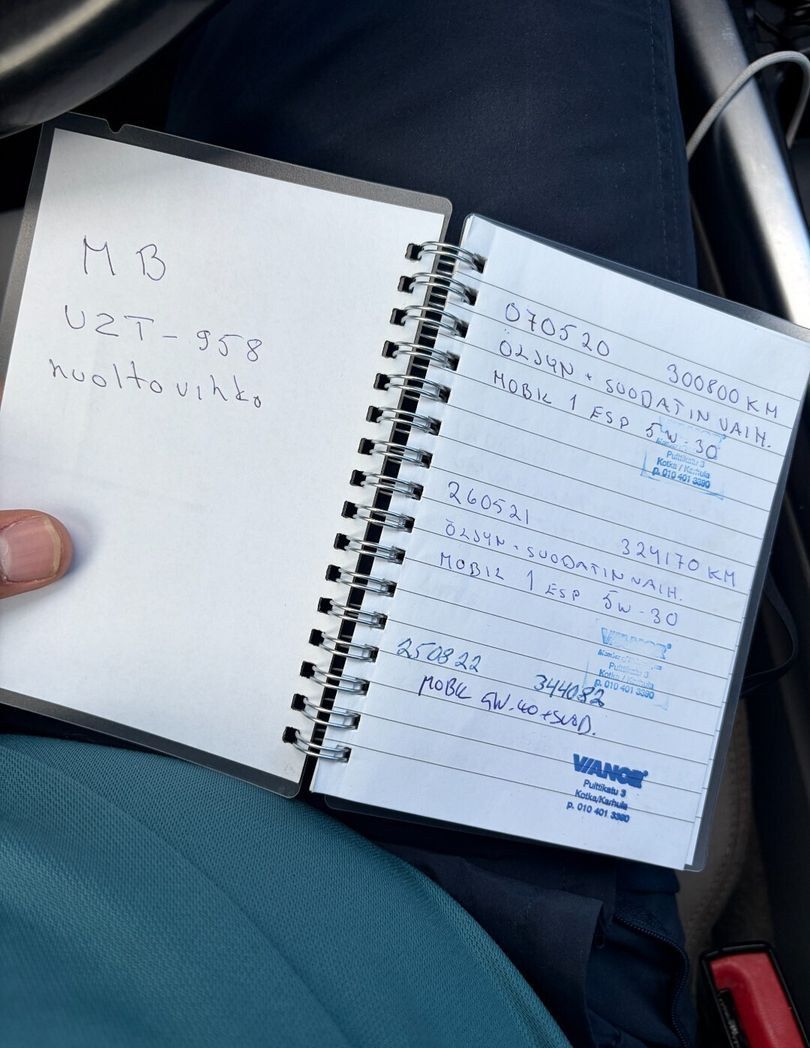 MB
UZT-958
huoltovihko
070520 300800 KM
ÖLJYN + SUODATIN VAIH.
MOBIL 1 ESP 5W-30
Puittikatu 3
Kotka / Karhula
p. 010 401 3390
260521 324170 KM
ÖLJYN + SUODATIN VAIH.
MOBIL 1 ESP 5W-30
VIANOR
Puittikatu 3
Kotka / Karhula
p. 010 401 3390
250822 344082
MOBIL 5W-40 + SUOD.
VIANOR
Puittikatu 3
Kotka/Karhula
p. 010 401 3390